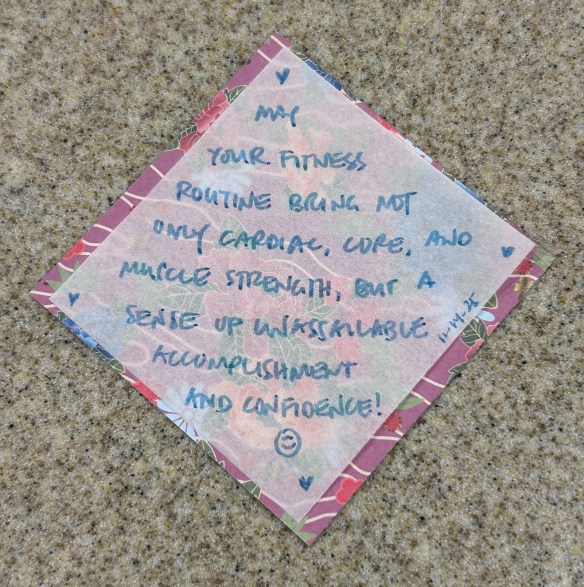 MAY
YOUR FITNESS
ROUTINE BRING NOT
ONLY CARDIAC, CORE, AND
MUSCLE STRENGTH, BUT A
SENSE OF UNASSAILABLE
ACCOMPLISHMENT
AND CONFIDENCE!
11-14-25